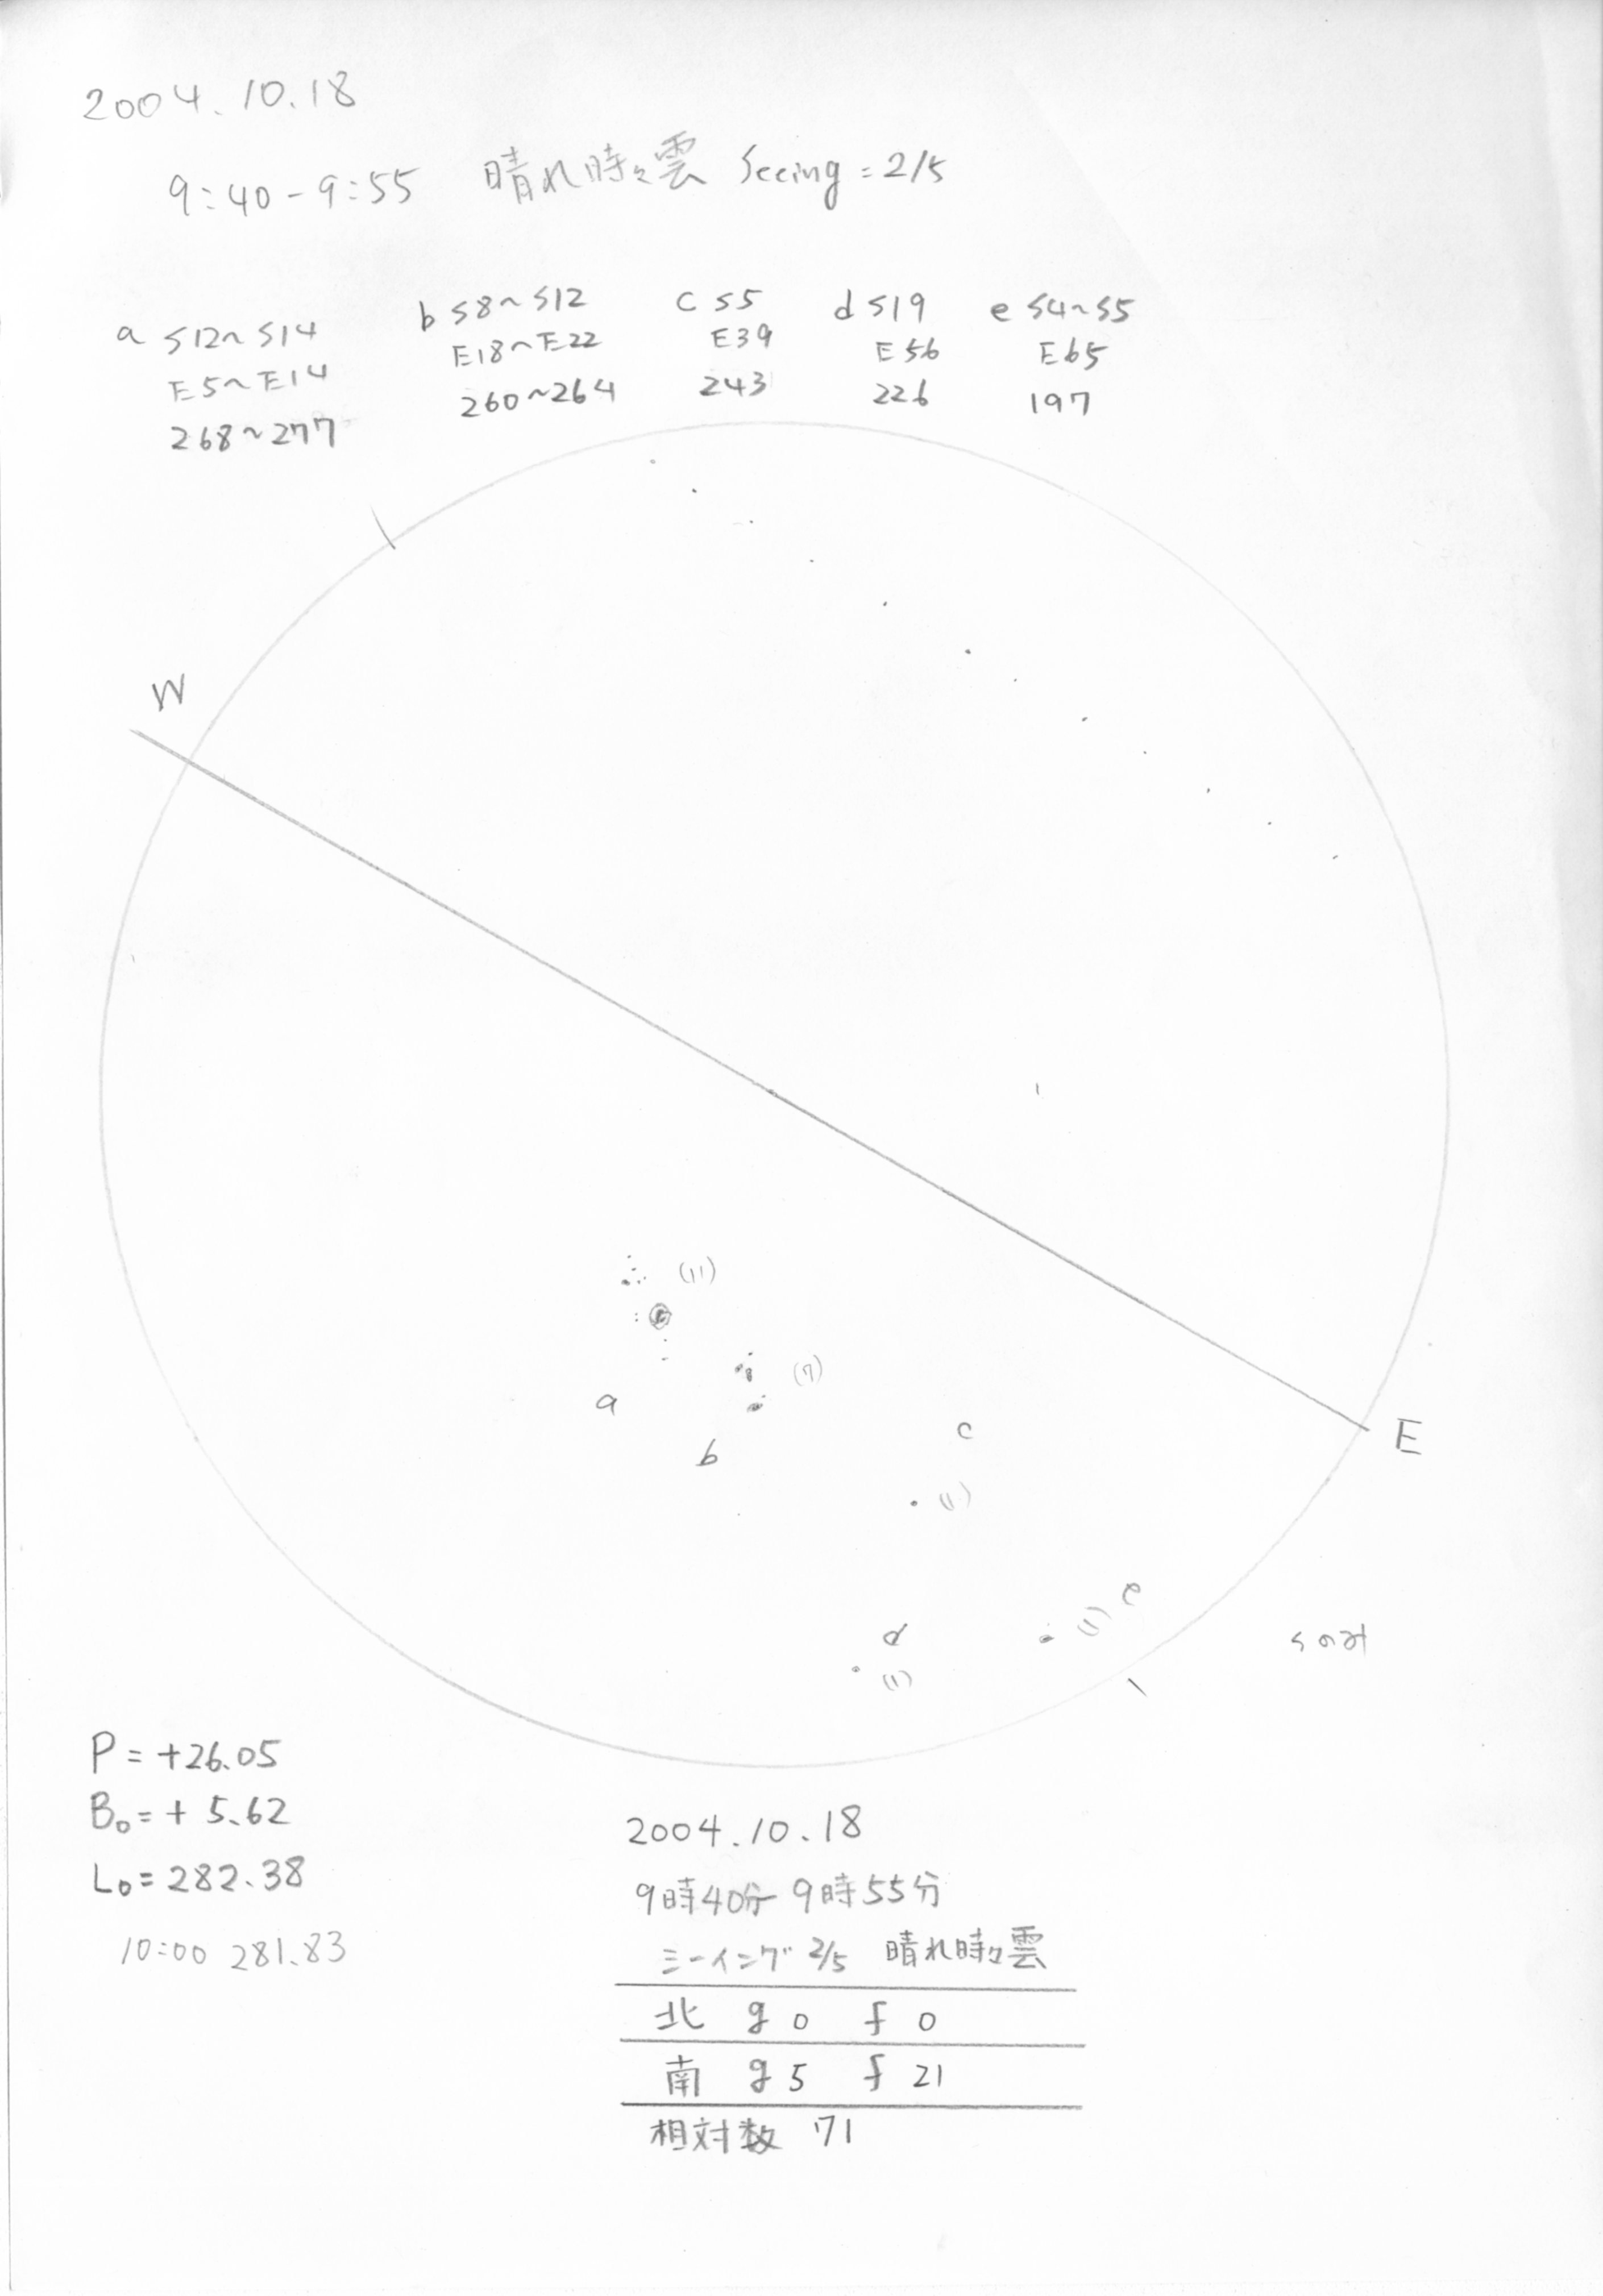 2004.10.18
9:40-9:55 晴れ時々雲 Seeing=2/5
a S12~S14
E5~E14
268~277
b S8~S12
E18~E22
260~264
c S5
E39
243
d S19
E56
226
e S4~S5
E65
197
W
(11)
a
(7)
b
c
(1)
E
e
(1)
d
(1)
P=+26.05
B0=+5.62
L0=282.38
10:00 281.83
2004.10.18
9時40分-9時55分
シーイング 2/5 晴れ時々雲
北 g 0 f 0
南 g 5 f 21
相対数 71